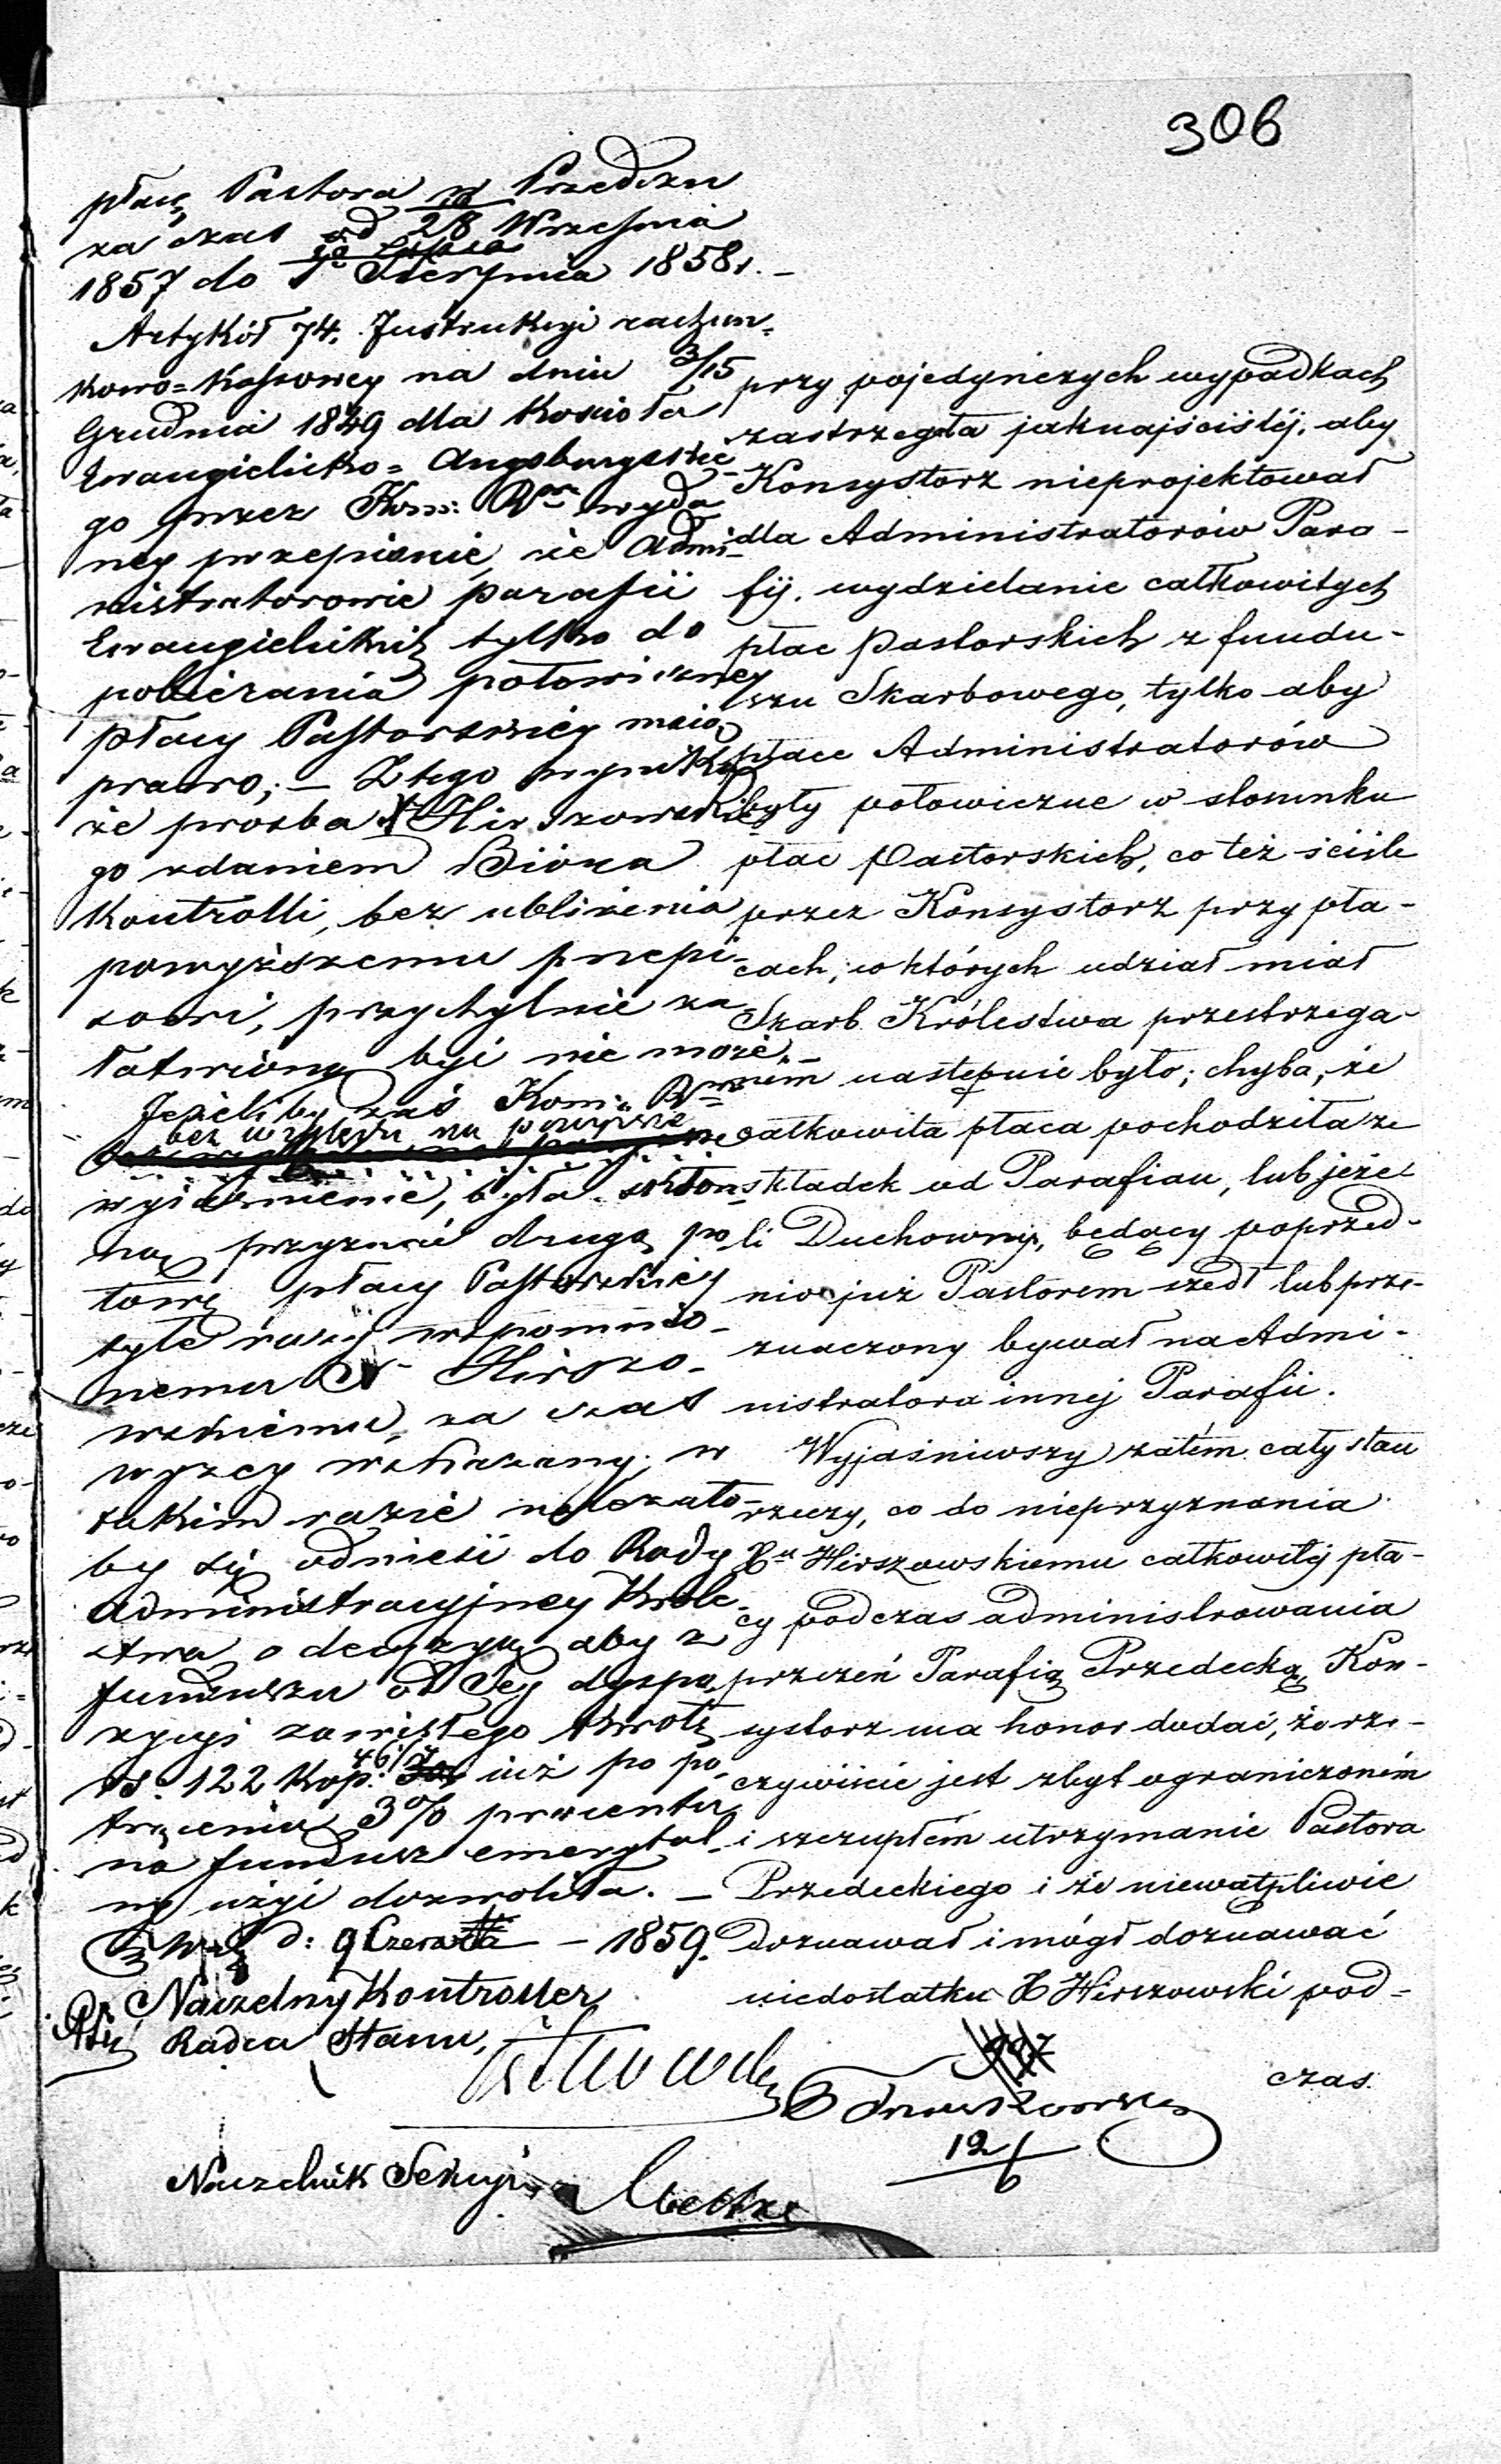 306
płacę Pastora w Przedczu
za czas od 28 Września
1857 do 1 Sierpnia 1858 r. –
Artykół 74. Instrukcyi rachun=
kowo=Kassowey na dniu 3/15
Grudnia 1849 dla Kościoła
Ewangielicko=Augsburgskie-
go przez Kom: Rną wyda
ney przepisuie, że Admi-
nistratorowie parafii
Ewangielickich tylko do
pobierania połowiczney
płacy Pastorskiey maią
prawo; – Z tego wynika
że prosba X Hirszowskie
go zdaniem Bióra
Kontrolli, bez ubliżenia
powyższemu przepi-
sowi, przychylnie za-
łatwioną być nie może. –
Jeżeliby zaś Kom: Rna
bez względu na powyższe
wyiaśnienie, była skłon-
ną przyznać drugą po
łowę płacy Pastorskiey
tyle razy wspomnio-
nemu X Hirszo-
wskiemu, za czas
wyżey wskazany; w
takim razie należało-
by się odnieść do Rady
Administracyjney Króle-
stwa o decyzyą aby z
funduszu od Jey dyspo-
zycyi zawisłego kwotę
rs. 122 kop. 46 1/2 iuż po po-
trąceniu 3% procentu
na fundusz emerytal-
ny użyć dozwoliła. –
d: 9 Czerwca – 1859.
Naczelny Kontroller
Radca Stanu,
Naczelnik Sekcyi
przy pojedynczych wypadkach
zastrzegła jaknajściślej, aby
Konsystorz nieprojektował
dla Administratorów Para-
fij, wydzielanie całkowitych
płac Pastorskich z fundu-
szu Skarbowego, tylko aby
płace Administratorów
były połowiczne w stosunku
płac Pastorskich, co też ściśle
przez Konsystorz przy pła-
cach, w których udział miał
Skarb Królestwa przestrzega-
nem następnie było; chyba, że
całkowita płaca pochodziła ze
składek od Parafian, lub jeże
li Duchowny, będący poprzed-
nio już Pastorem szedł lub prze-
znaczony bywał na Admi-
nistratora innej Parafii.
Wyjaśniwszy zatém cały stan
rzeczy, co do nieprzyznania
Xu Hirszowskiemu całkowitej pła-
cy podczas administrowania
przezeń Parafią Przedecką, Kon-
systorz ma honor dodać, że rze-
czywiście jest zbyt ograniczoném
i szczupłém utrzymanie Pastora
Przedeckiego i że niewątpliwie
doznawał i mógł doznawać
niedostatku X Hirszowski pod-
czas
12/6